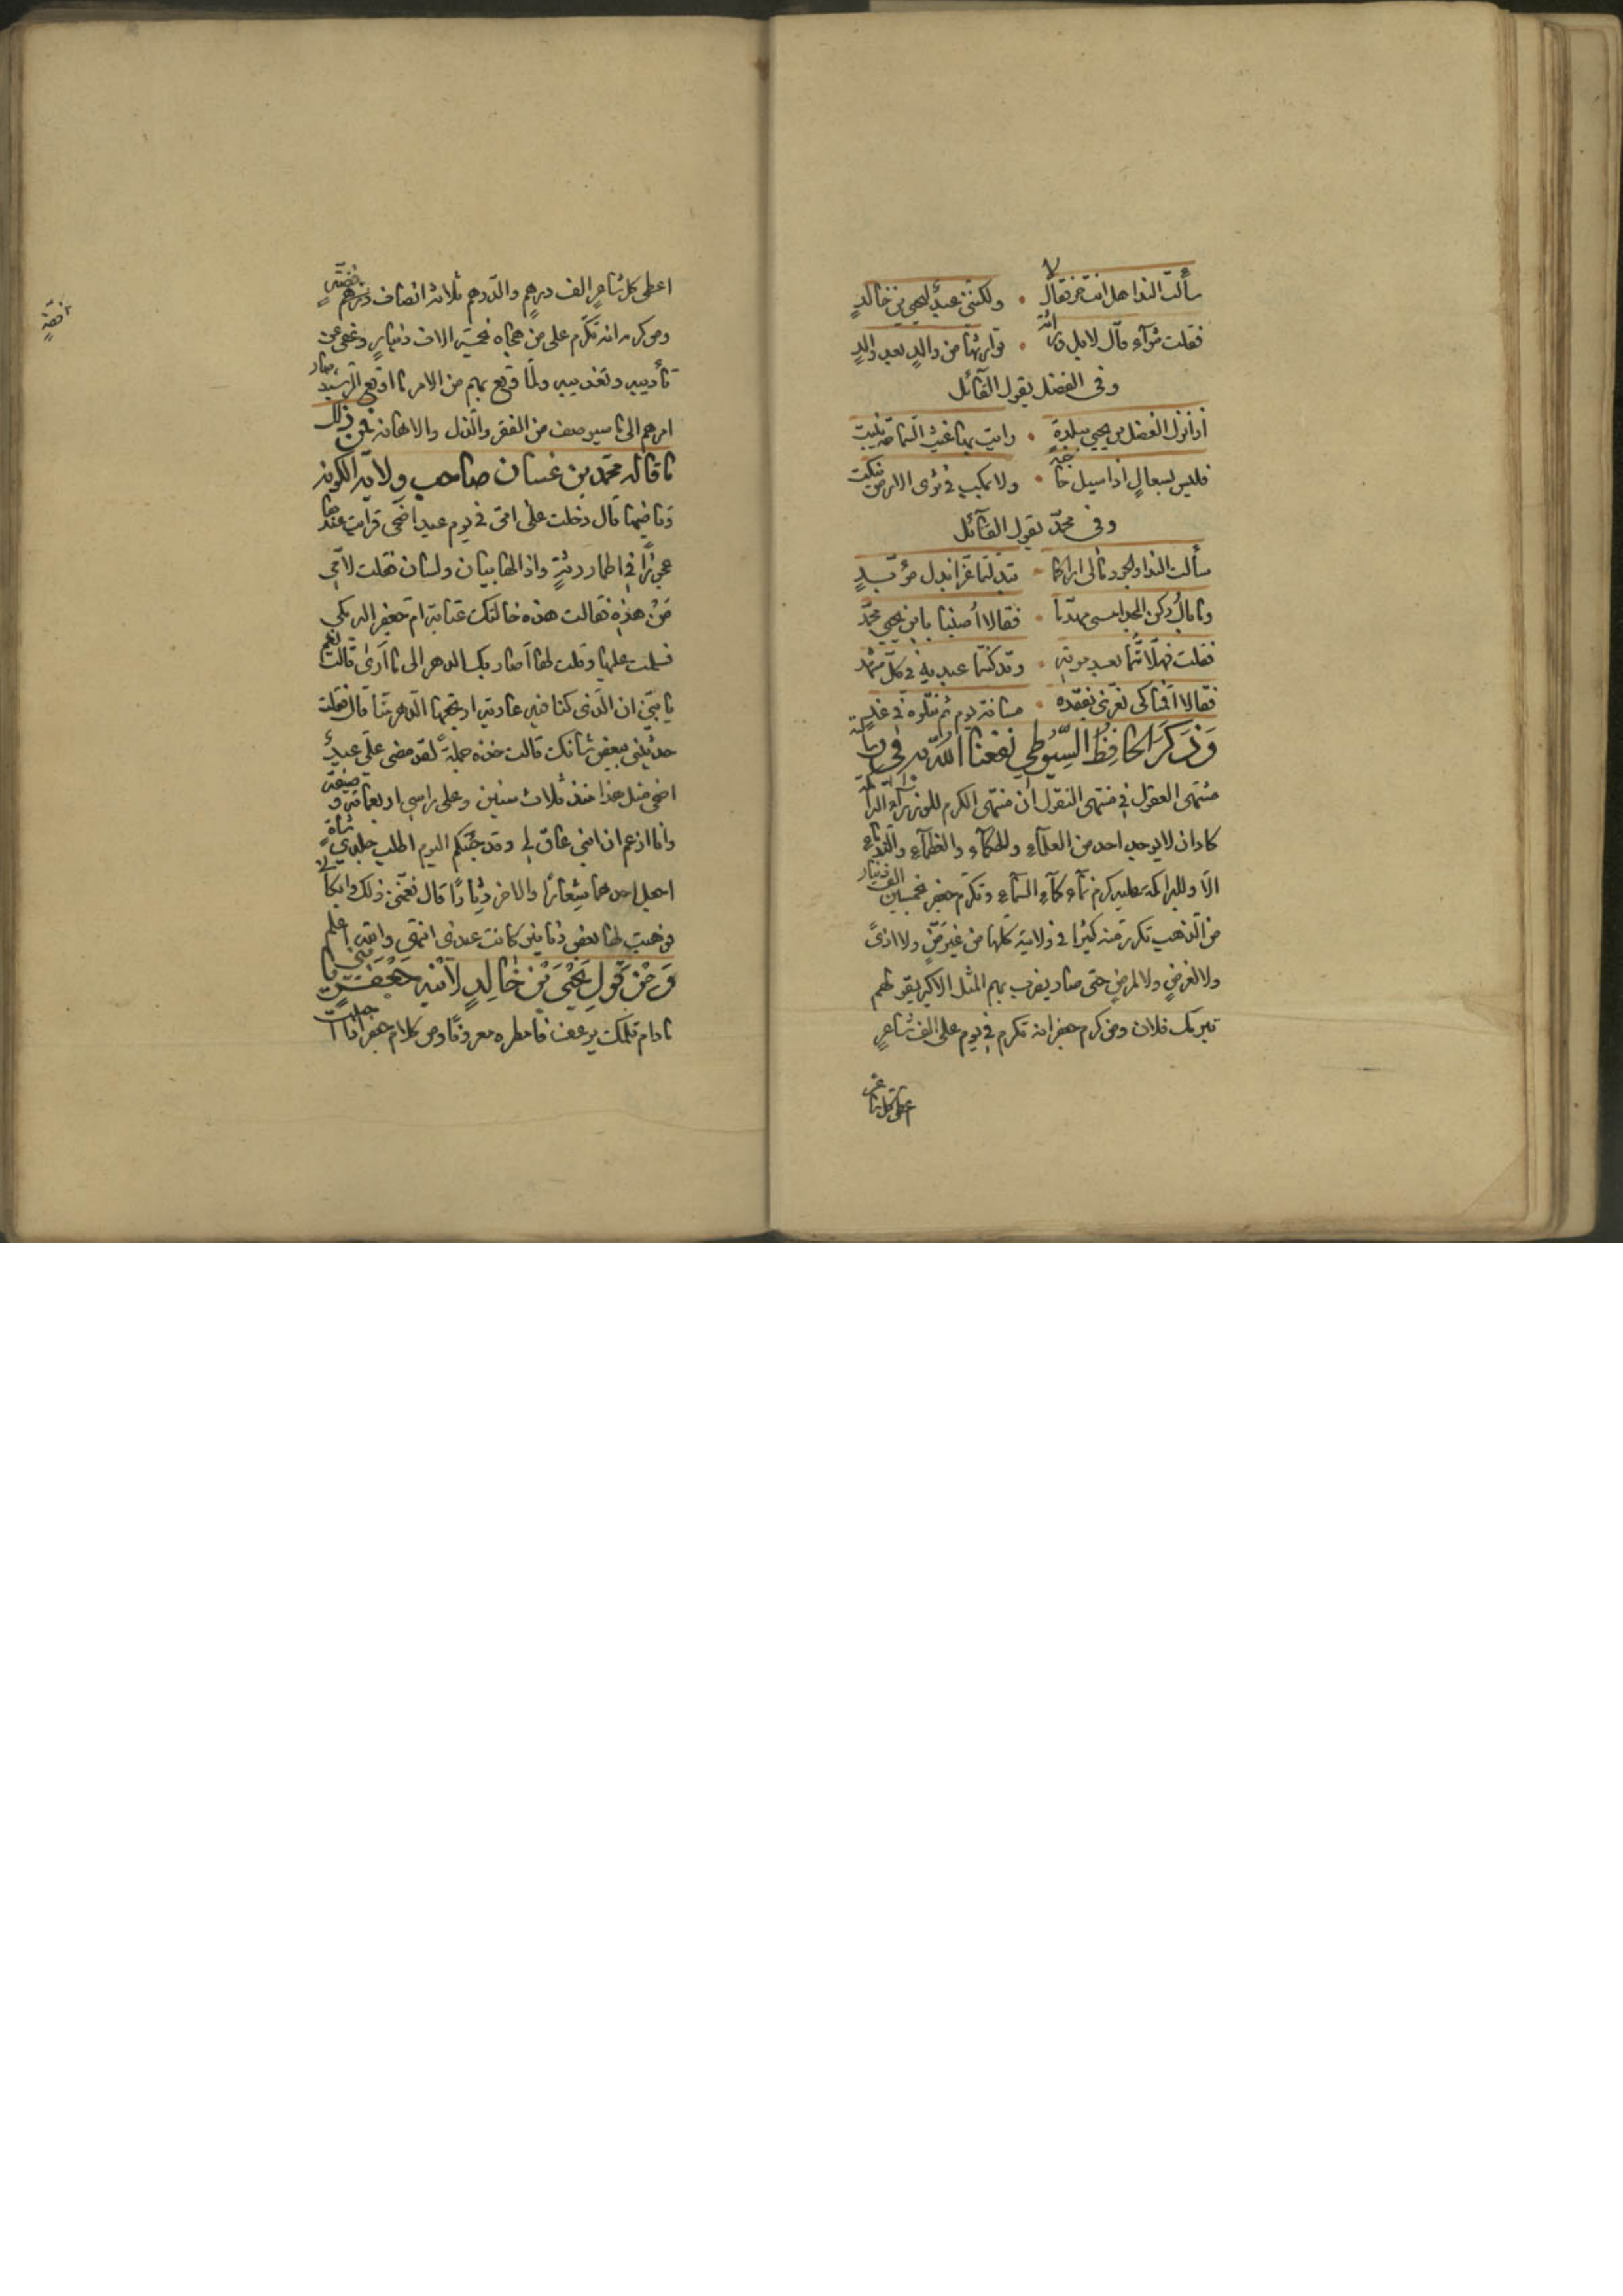 سألت الندا هل انت حر فقال لا • ولكنني عبد ليحيي بن خالد
فقلت شرآء قال لا بل وراثة • توارثها من والد بعد والد
وفى الفضل يقول القآئل
اذا نزل الفضل بن يحيي ببلدة • رايت بها غيث السماحة ينبت
فليس بسعال اذا سيل حاجة • ولا بمكب في ثرى الارض ينكت
وفى محمد يقول القآئل
سألت الندا والجود مالى اراكما • تبدلتما عزا بذل مؤبد
وما بال ركن المجد امسى مهدما • فقالا أصبنا بابن يحيي محمد
فقلت فهلا متما بعد موته • وقد كنتما عبديه في كل مشهد
فقالا اقمنا كى نعزى بفقده • مسافة يوم ثم نتلوه في غد
وذكر الحافظ السيوطي نفعنا الله به في كتابه
منتهى العقول في منتهى النقول ان منتهى الكرم للوزرآء البرامكة
كاد ان لا يوجد احد من العلمآء والحكمآء والندمآء
الا وللبرامكة عليه كرم نمآء كمآء السمآء وتكرم جعفر بخمسين الف دينار
من الذهب تكرر منه كثيرا في ولايته كلها من غير من ولا اذى
ولا لغرض ولا لمرض حتى صار يضرب بهم المثل الاكبر بقولهم
تبرمك فلان ومن كرم جعفر انه تكرم في يوم على الف شاعر
اعطى كل شاعر
اعطى كل شاعر الف درهم والدرهم ثلاثة انصاف فضة
ومن كرمه انه تكرم على من هجاه بخمسة الاف دينار وعفى عن
تأديبه وتعذيبه ولما وقع بهم من الامر ما اوقع الرشيد صار
امرهم الى ما سيوصف من الفقر والذل والاهانة فمن ذلك
ما قاله محمد بن غسان صاحب ولاية الكوفة
وقاضيها قال دخلت على امى في يوم عيد اضحى فرايت عندها
عجوزا في اطمار رثة واذا لها بيان ولسان فقلت لأمي
من هذه فقالت هذه خالتك عتابة ام جعفر البرمكي
فسلمت عليها وقلت لها اصار بك الدهر الى ما أرى قالت نعم
يا بني ان الذى كنا فيه عارية ارتجعها الدهر منا قال فقلت
حدثيني ببعض شانك قالت خذه جملة لقد مضى علي عيد
اضحى مثل هذا منذ ثلاث سنين وعلى راسي اربعماية وصيفة
وانا ازعم ان ابني عاق لي وقد جئتكم اليوم اطلب جلدي شاة
اجعل احدهما شعارا والاخر دثارا قال فغمنى ذلك وابكانى
فوهبت لها بعض دنانير كانت عندى انتهى والله اعلم
ومن قول يحيى بن خالد لابنه جعفر يا بني
ما دام قلمك يرعف فامطره معروفا ومن كلام جعفر اذا
فضة